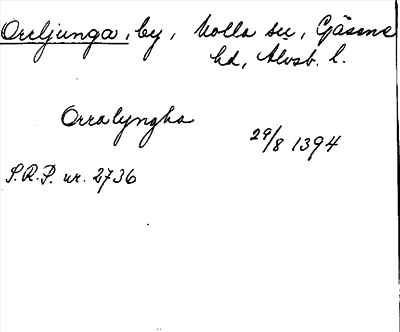 Orreljunga, by, Molla sn, Gäsene
hd, Älvsb. l.
Orralyngha
29/8 1394
S.R.P. nr. 2736